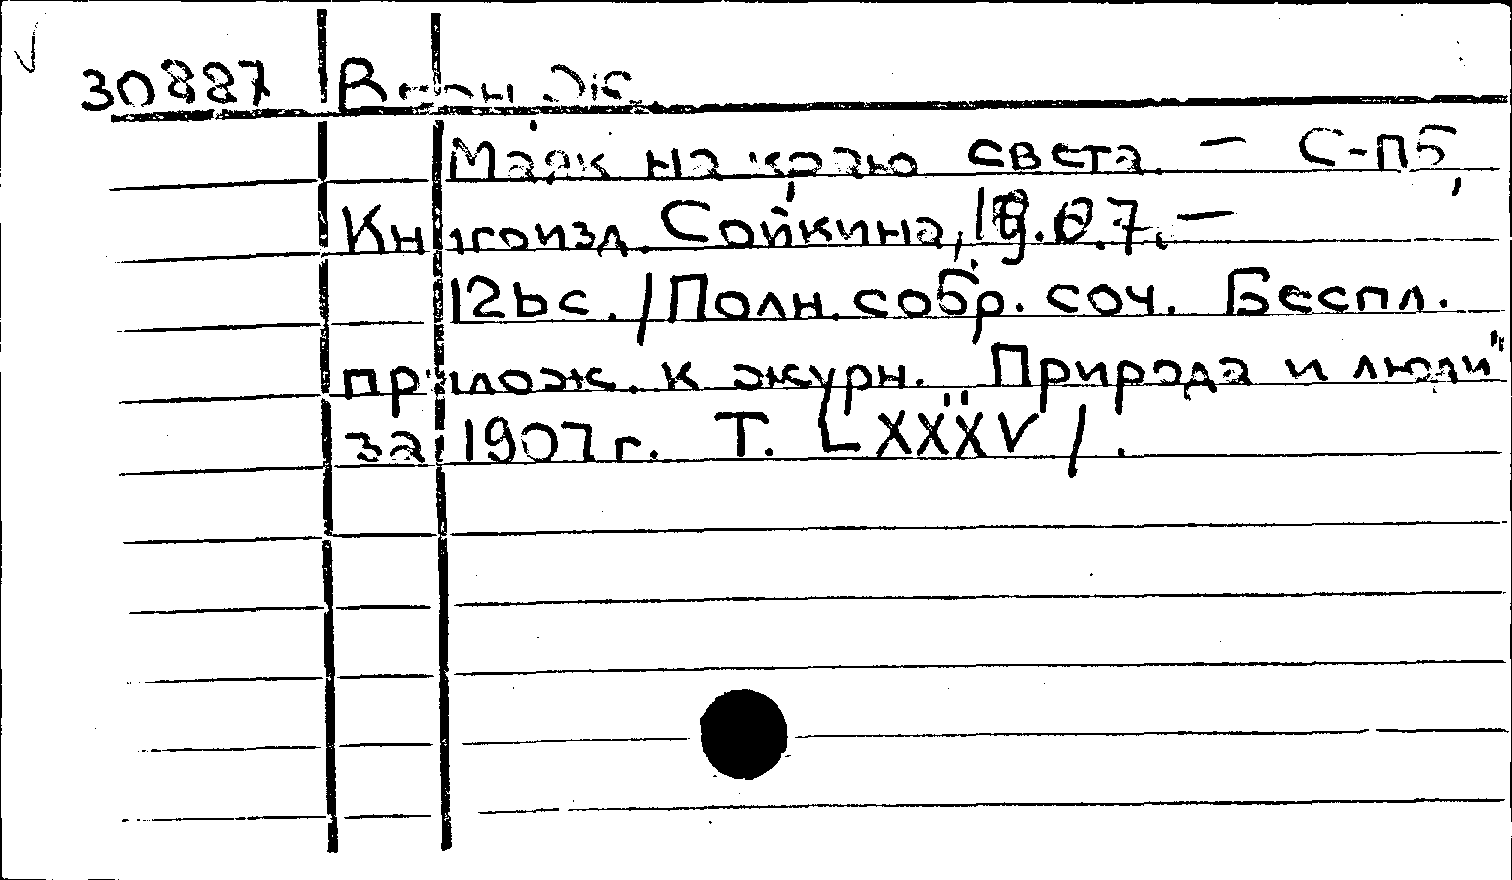 30887 Верн Ж.
Маяк на краю света. — С-ПБ,
Книгоизд. Сойкина, 1907. —
126с. /Полн. собр. соч. Беспл.
прилож. к журн. "Природа и люди"
за 1907 г. Т. LXXXV/.